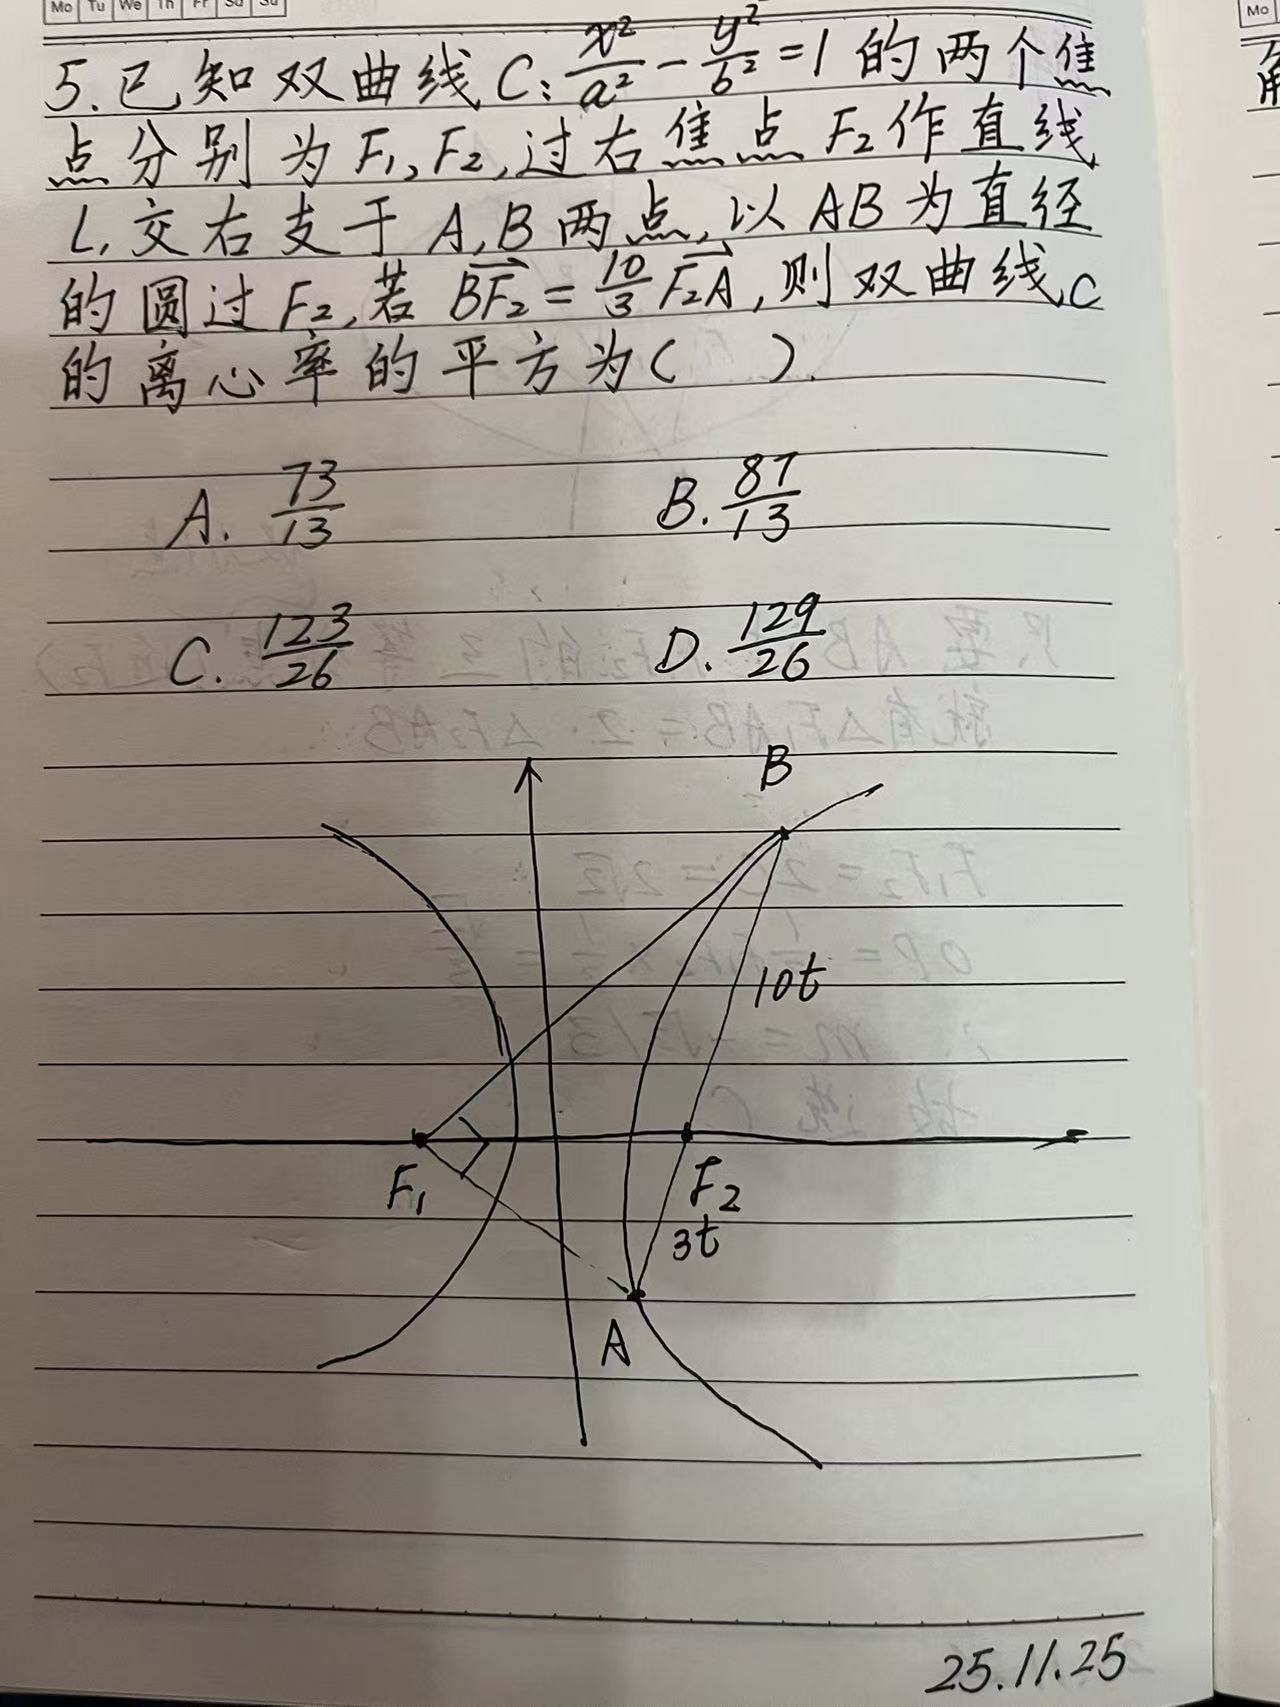 Mo Tu We Th Fr Sa Su
Mo
5.已知双曲线C:x²/a²-y²/b²=1的两个焦
点分别为F₁,F₂,过右焦点F₂作直线
L,交右支于A,B两点,以AB为直径
的圆过F₂,若BF₂→=10/3F₂A→,则双曲线C
的离心率的平方为( ).
A. 73/13 B. 87/13
C. 123/26 D. 129/26
B
10t
F₁ F₂
3t
A
25.11.25